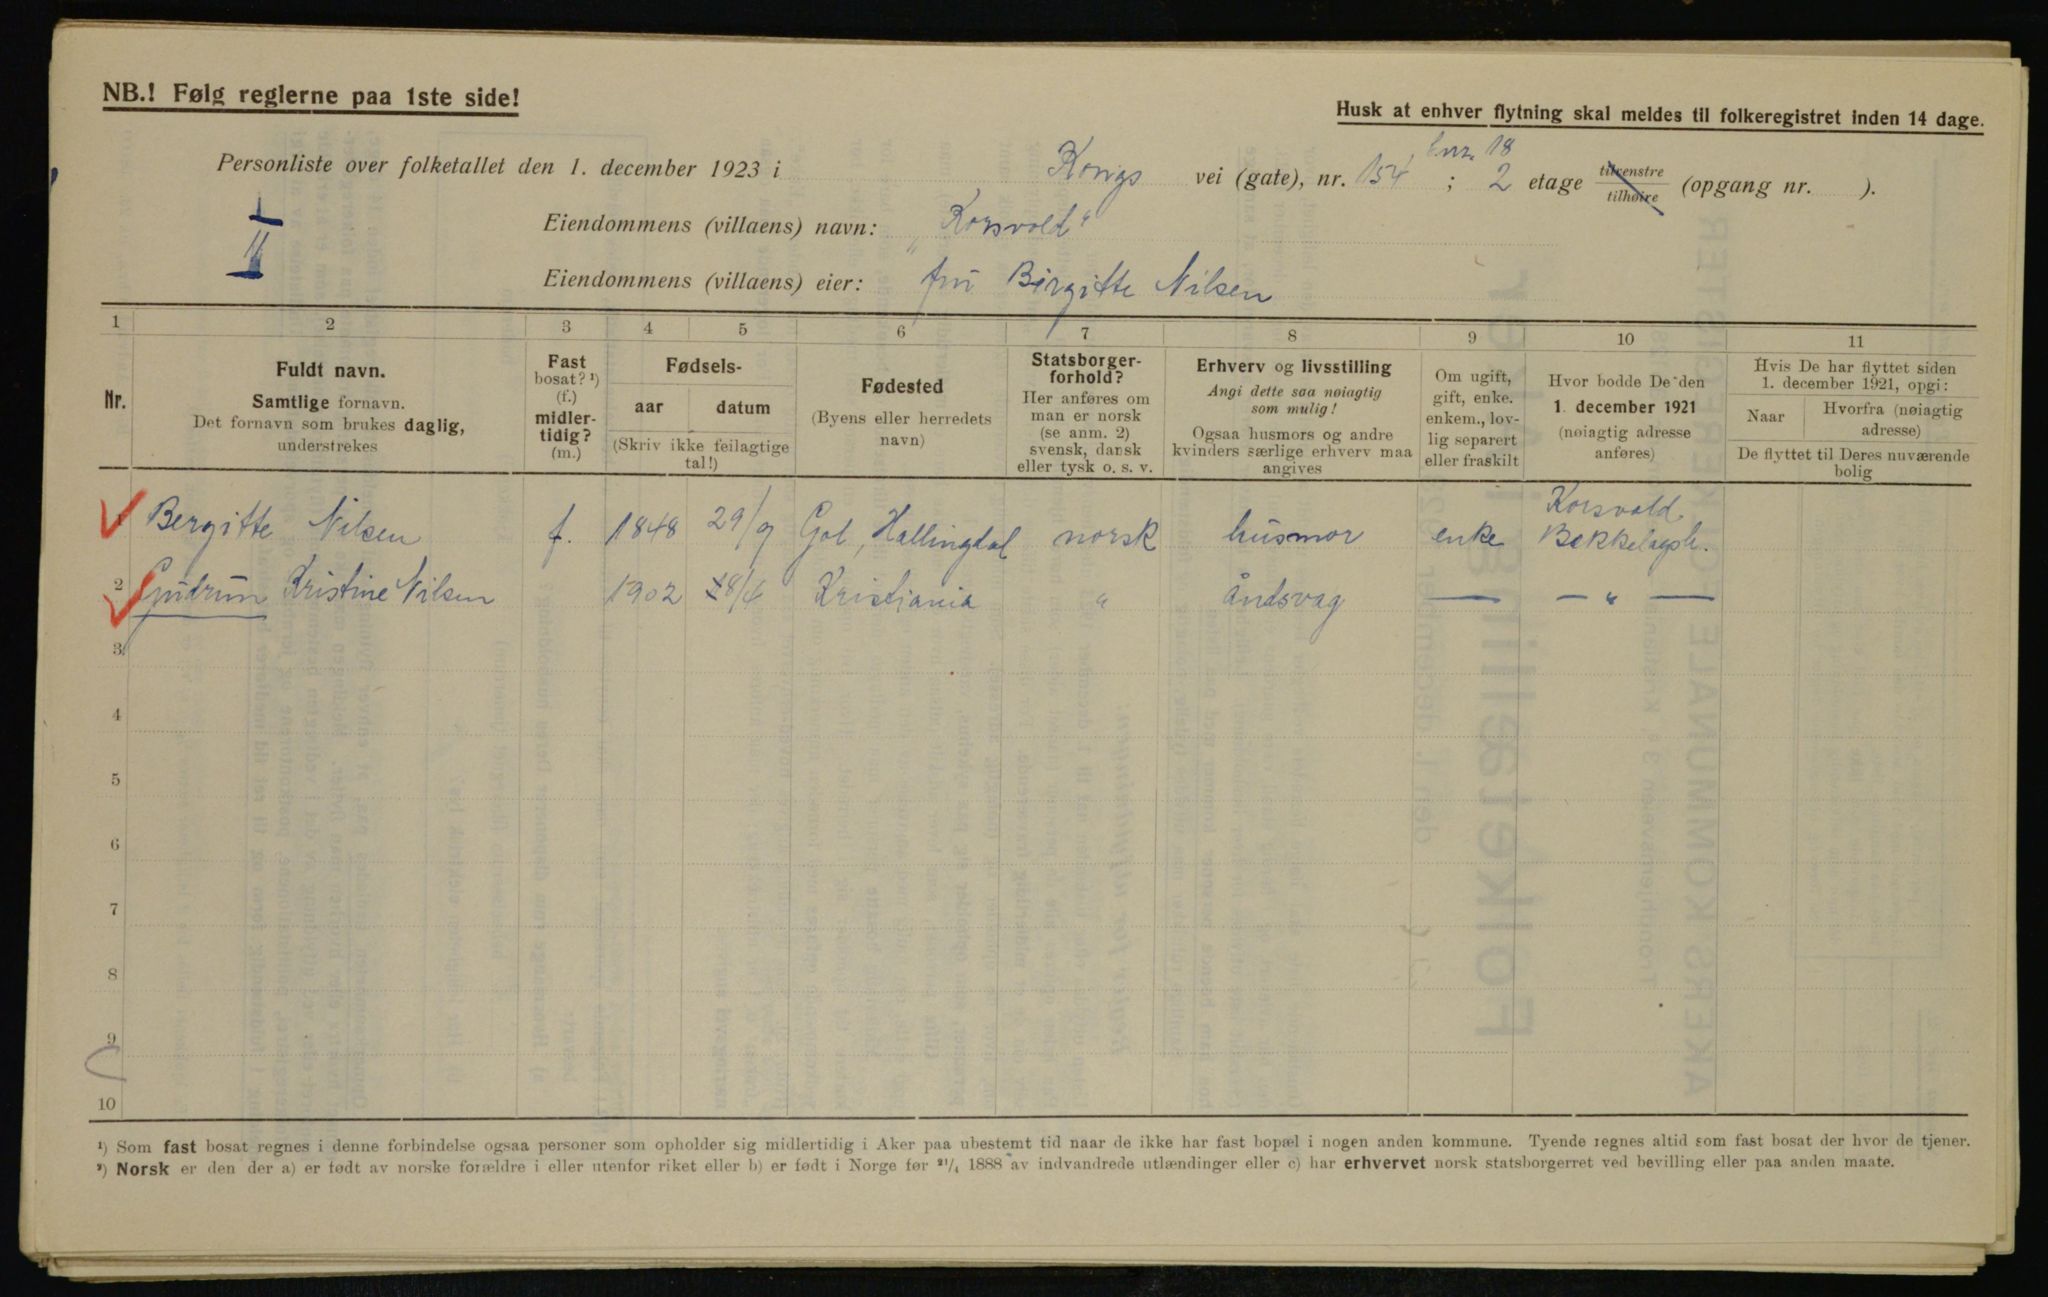 NB.! Følg reglerne paa 1ste side!
Husk at enhver flytning skal meldes til folkeregistret inden 14 dage.
Personliste over folketallet den 1. december 1923 i Kongs vei (gate), nr. 154 ; 2 etage tilvenstre / tilhøire (opgang nr. ).
bnr. 18
I
II
Eiendommens (villaens) navn: „Korsvold"
Eiendommens (villaens) eier: fru Birgitte Nilsen
1 2 3 4 5 6 7 8 9 10 11
Nr.
Fuldt navn.
Samtlige fornavn.
Det fornavn som brukes daglig,
understrekes
Fast
bosat? ¹)
(f.)
midler-
tidig?
(m.)
Fødsels-
aar datum
(Skriv ikke feilagtige
tal!)
Fødested
(Byens eller herredets
navn)
Statsborger-
forhold?
Her anføres om
man er norsk
(se anm. 2)
svensk, dansk
eller tysk o. s. v.
Erhverv og livsstilling
Angi dette saa nøiagtig
som mulig!
Ogsaa husmors og andre
kvinders særlige erhverv maa
angives
Om ugift,
gift, enke.
enkem., lov-
lig separert
eller fraskilt
Hvor bodde De den
1. december 1921
(nøiagtig adresse
anføres)
Hvis De har flyttet siden
1. december 1921, opgi:
Naar Hvorfra (nøiagtig
adresse)
De flyttet til Deres nuværende
bolig
Korsvold
1 Bergitte Nilsen f. 1848 29/9 Gol, Hallingdal norsk husmor enke Bekkelagsh.
2 Gudrun Kristine Nilsen 1902 8/4 Kristiania " Åndsvag — — " —
3
4
5
6
7
8
9
10
¹) Som fast bosat regnes i denne forbindelse ogsaa personer som opholder sig midlertidig i Aker paa ubestemt tid naar de ikke har fast bopæl i nogen anden kommune. Tyende regnes altid som fast bosat der hvor de tjener.
²) Norsk er den der a) er født av norske forældre i eller utenfor riket eller b) er født i Norge før 21/4 1888 av indvandrede utlændinger eller c) har erhvervet norsk statsborgerret ved bevilling eller paa anden maate.